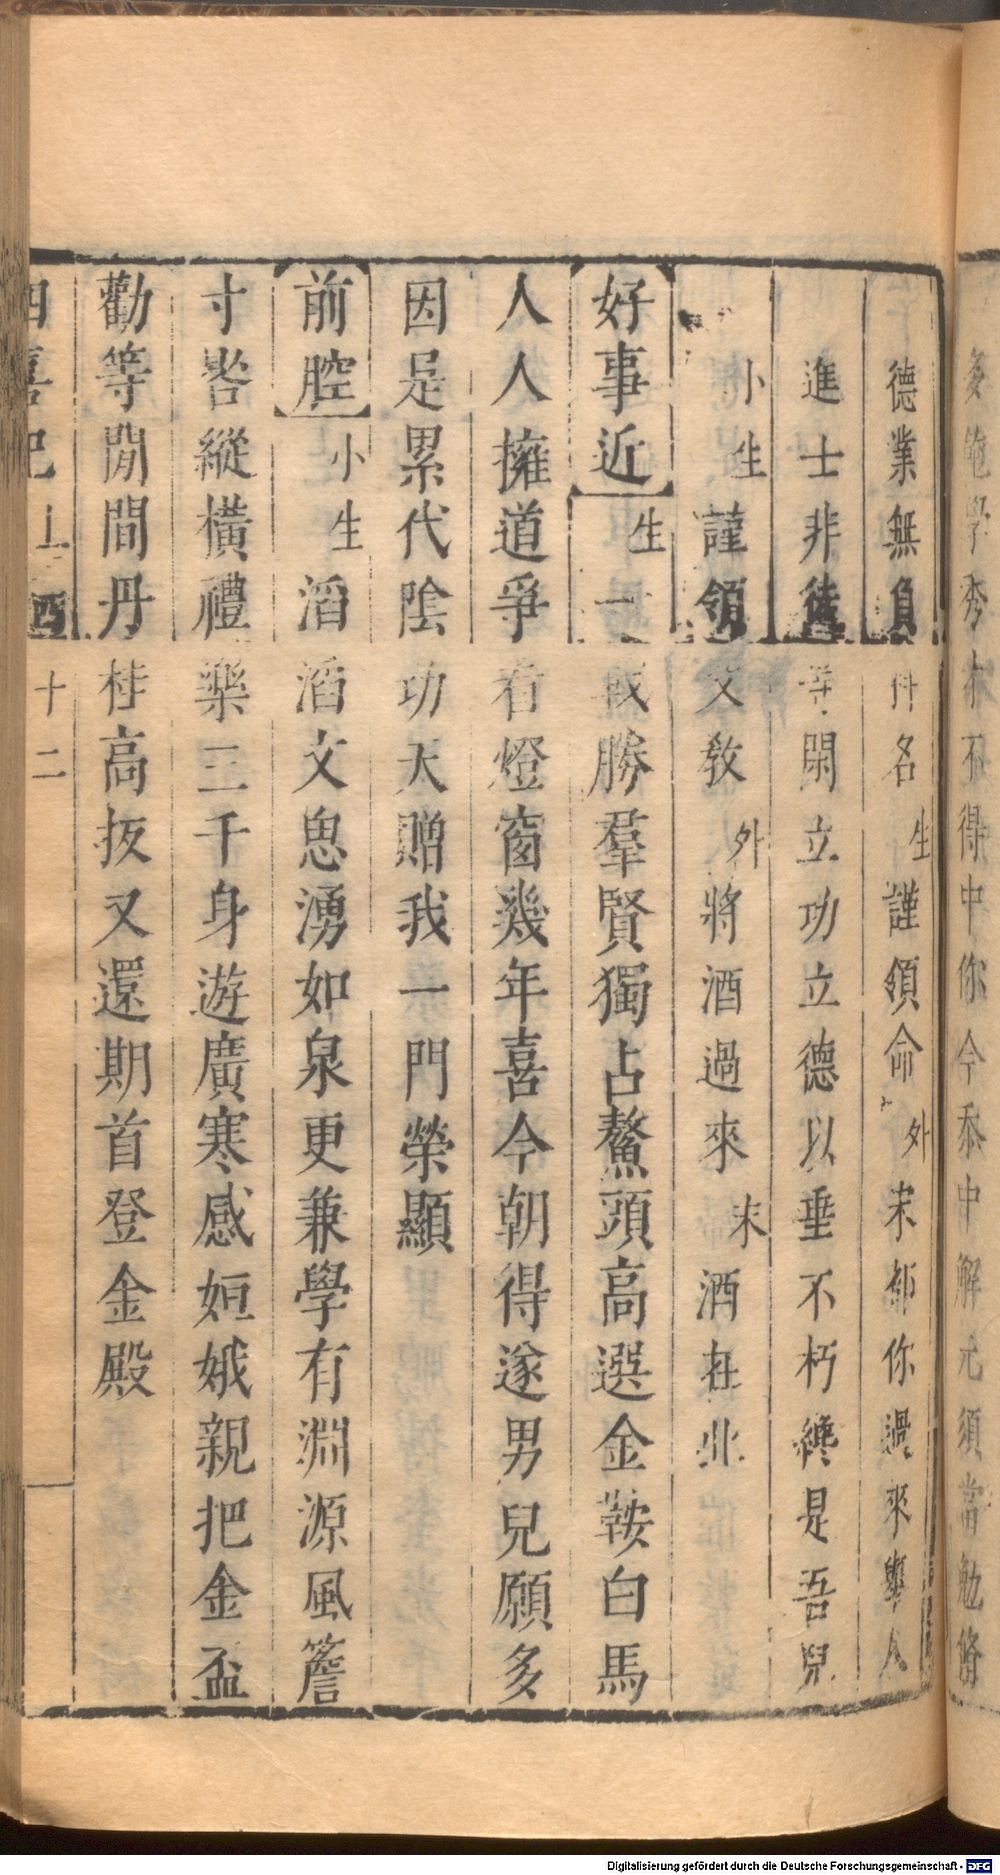 多飽學秀才不得中你今忝中解元須當勉脩
德業無負科名生謹領命外末郎你過來舉人
進士非徒等閑立功立德以垂不朽纔是吾兒
小生謹領文敎外將酒過來末酒在此
好事近生一戰勝羣賢獨占鰲頭高選金鞍白馬
人人擁道爭看燈窗幾年喜今朝得遂男兒願多
因是累代陰功天贈我一門榮顯
前腔小生滔滔文思湧如泉更兼學有淵源風簷
寸晷縱橫禮樂三千身遊廣寒感姮娥親把金盃
勸等閒間丹桂高扳又還期首登金殿
四喜記上 十二
Digitalisierung gefördert durch die Deutsche Forschungsgemeinschaft - DFG